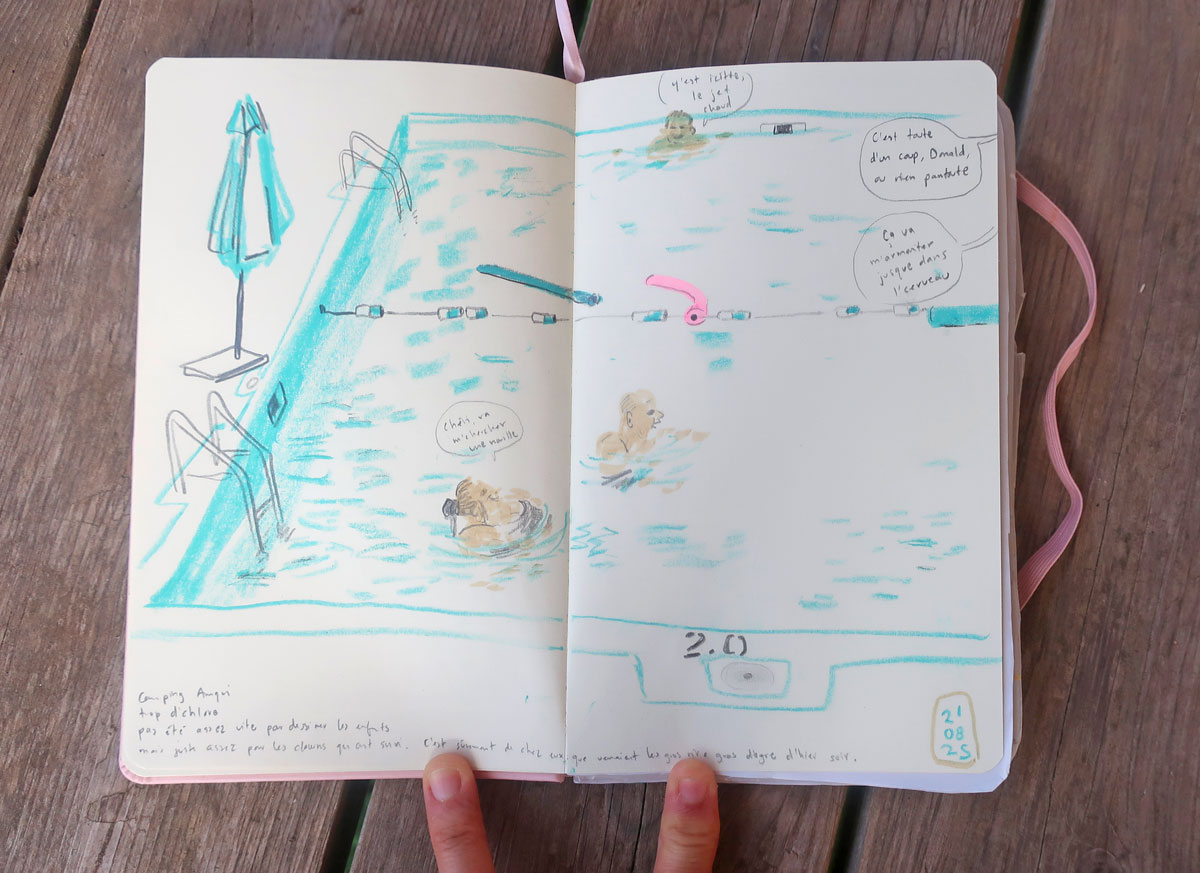 y'est icitte,
le jet
chaud
C'est toute
d'un coup, Donald,
ou rien pantoute
Ça va
m'armonter
jusque dans
l'cerveau
Chéri, va
m'chercher
une nouille
2.0
Camping Amqui
trop d'chlore
pas été assez vite pour dessiner les enfants
mais juste assez pour les clowns qui ont suivi. C'est sûrement de chez eux que venaient les gros rires gras d'hier soir.
21
08
25